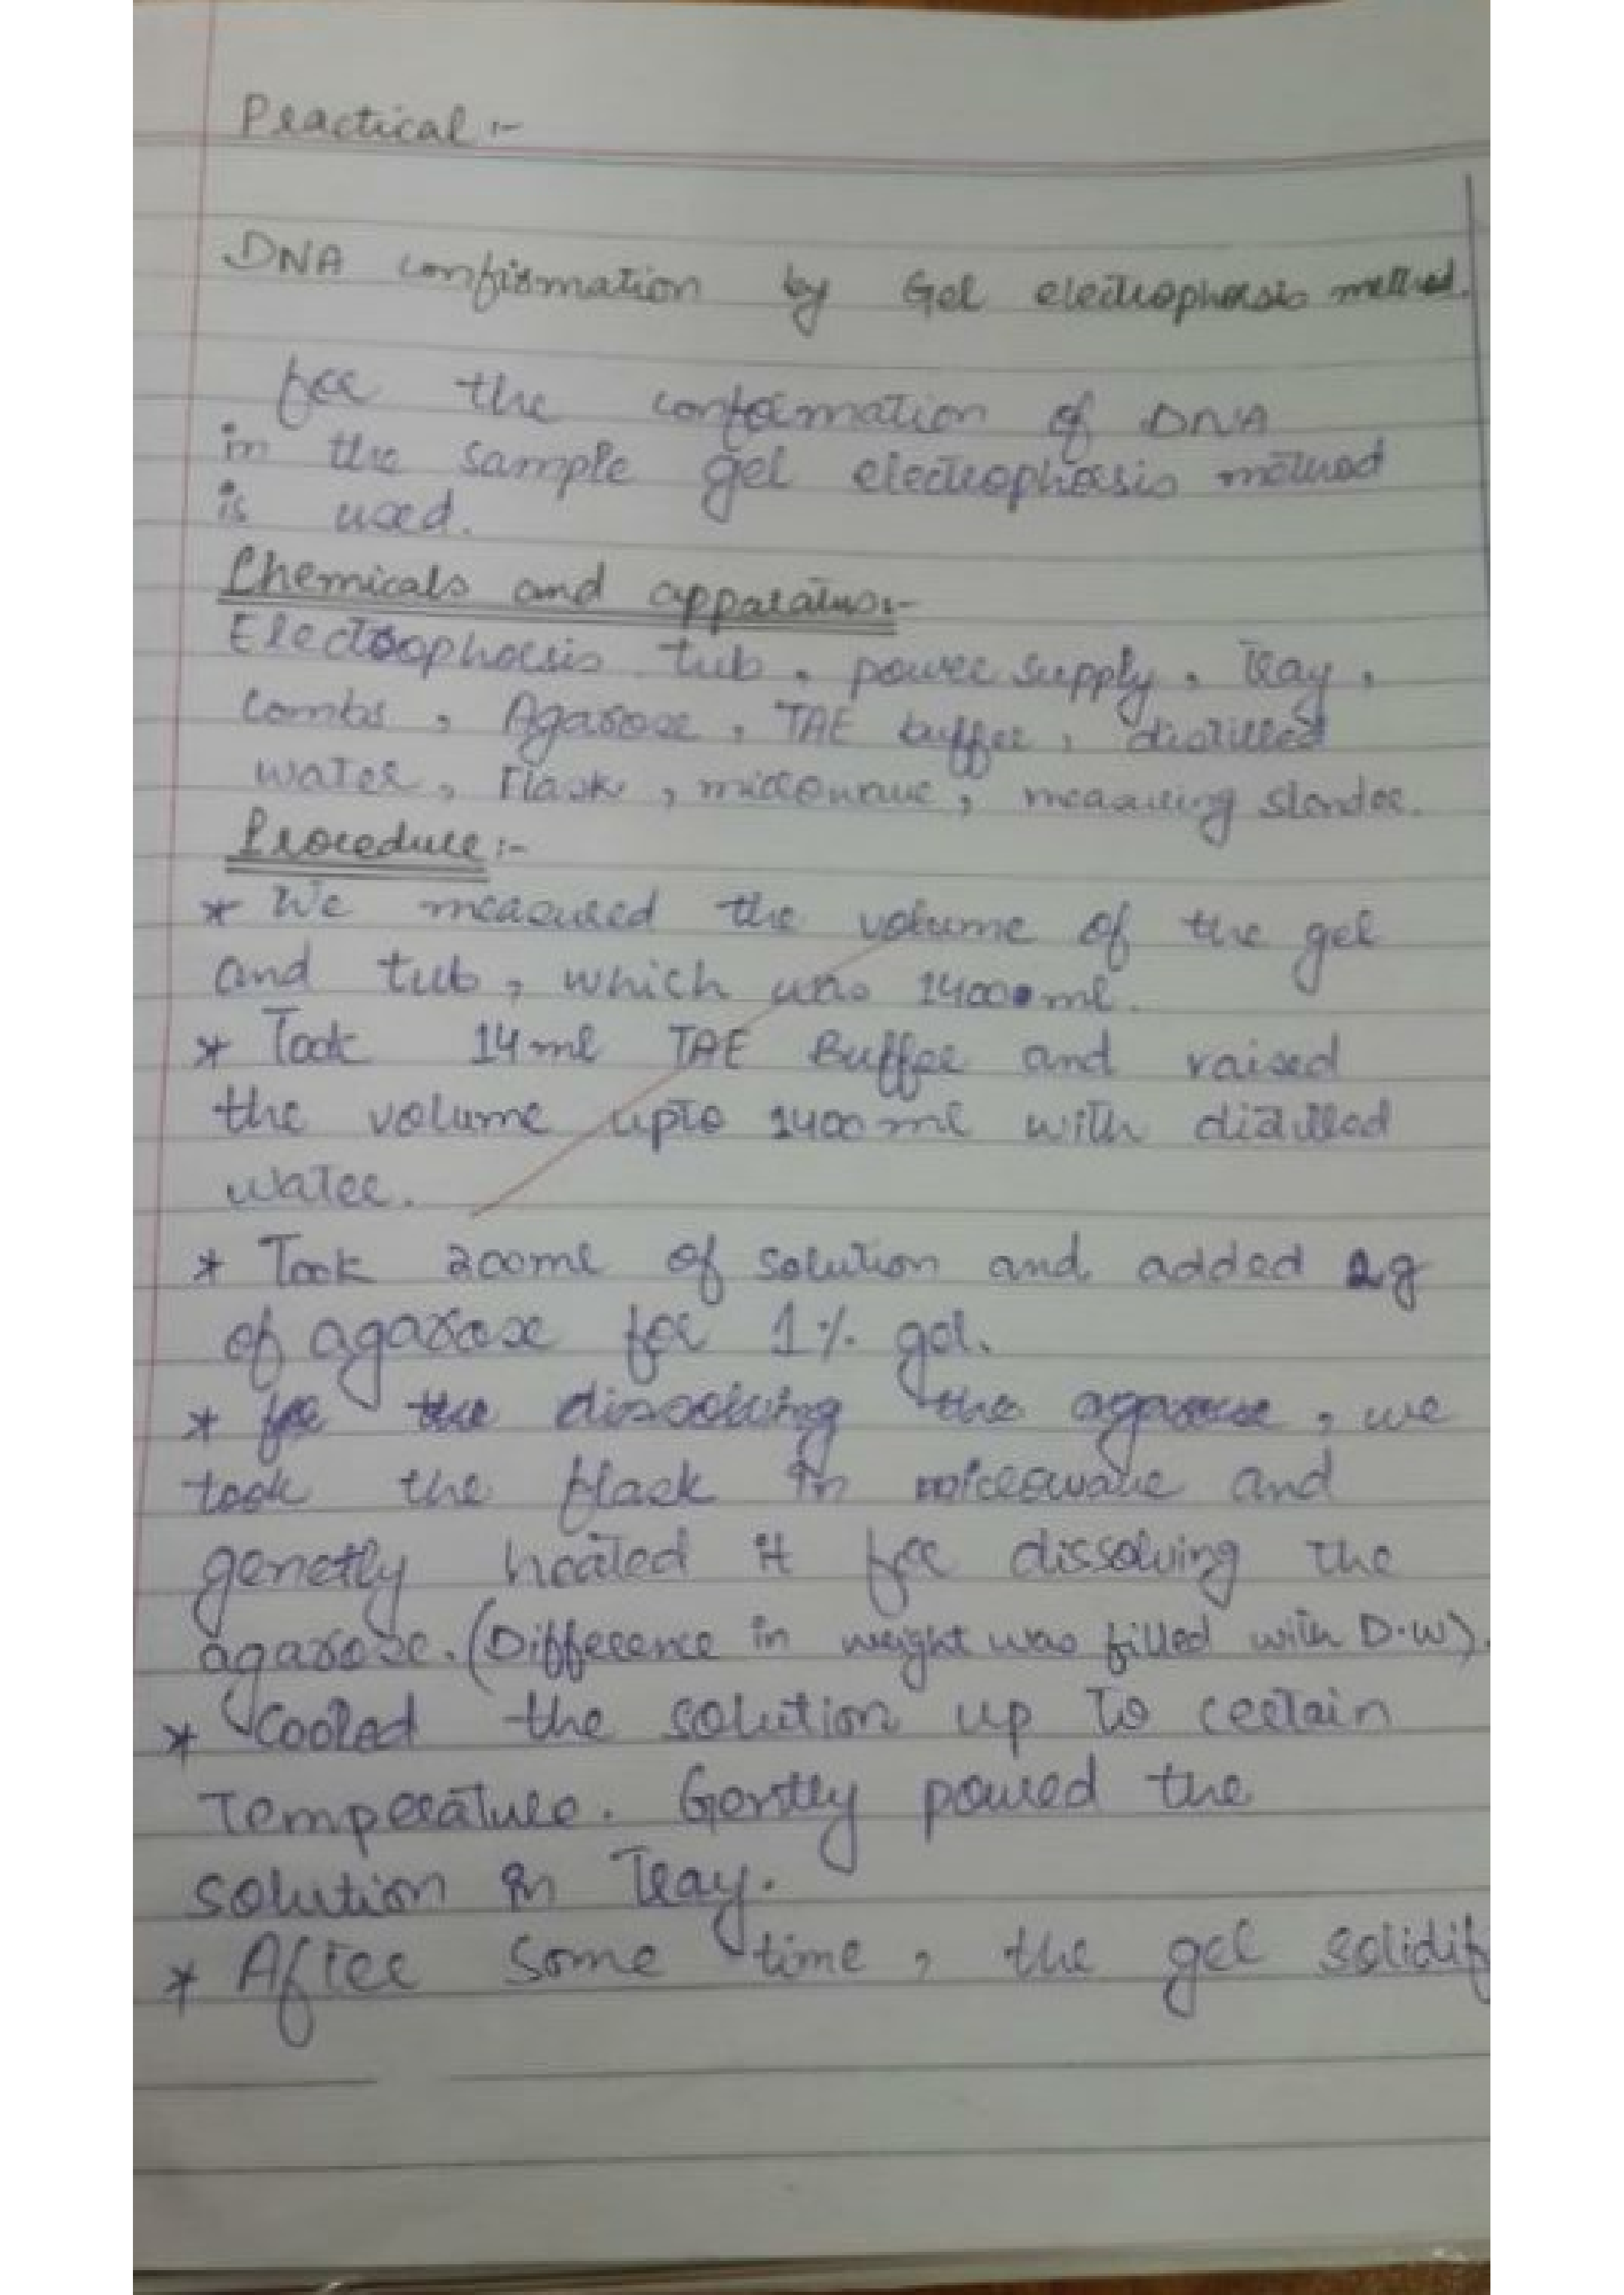 Practical :-
DNA confirmation by Gel electrophorsis method.
for the conformation of DNA
in the sample gel electrophorsis method
is used.
Chemicals and apparatus:-
Electrophorsis tub, power supply, Tray,
Combs, Agarose, TAE buffer, distilled
water, Flask, microwave, measuring slender.
Procedure :-
* We measured the volume of the gel
and tub, which was 1400 ml.
* Took 14 ml TAE Buffer and raised
the volume upto 1400 ml with distilled
water.
* Took 200ml of solution and added 2g
of agarose for 1% gel.
* for the dissolving the agarose, we
took the flask in microwave and
genetly heated it for dissolving the
agarose. (Difference in weight was filled with D.W).
* Cooled the solution up to certain
Temperature. Gently poured the
solution in Tray.
* After some time, the gel solidif